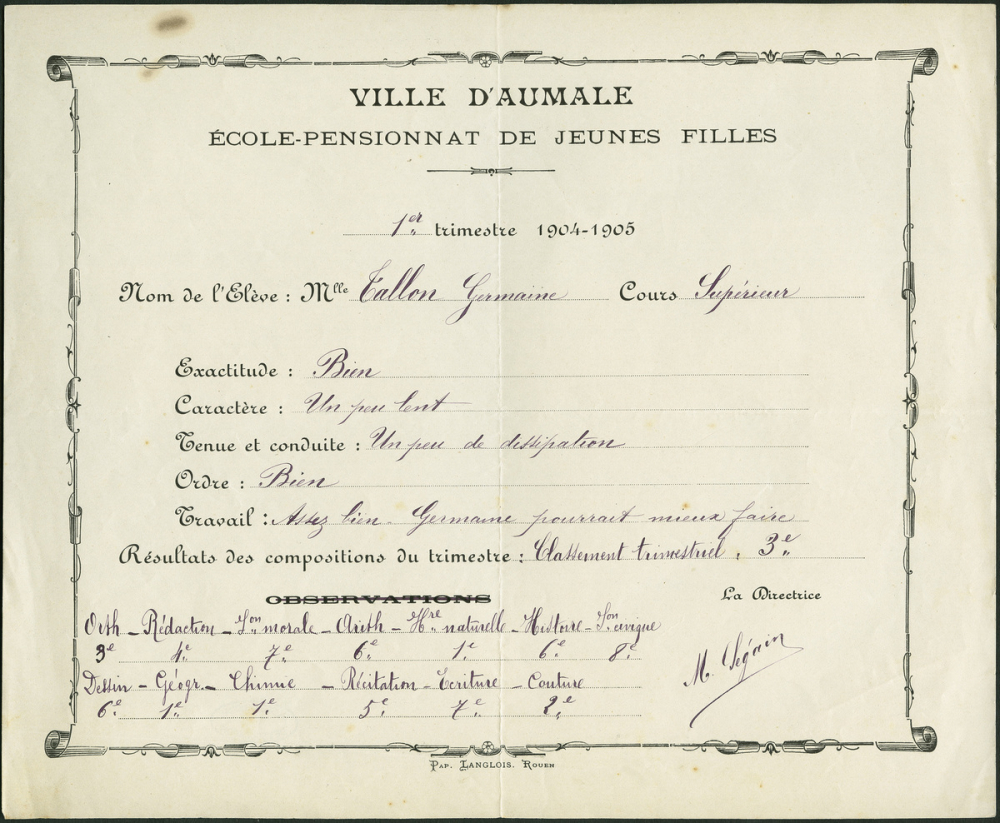 VILLE D'AUMALE
ÉCOLE-PENSIONNAT DE JEUNES FILLES
1er trimestre 1904-1905
Nom de l'Elève : Mlle Tallon Germaine Cours Supérieur
Exactitude : Bien
Caractère : Un peu lent
Tenue et conduite : Un peu de dissipation
Ordre : Bien
Travail : Assez bien - Germaine pourrait mieux faire
Résultats des compositions du trimestre : Classement trimestriel : 3e
OBSERVATIONS La Directrice
Orth - Rédaction - Ion morale - Arith - Hre naturelle - Histoire - Ion civique
3e 4e 7e 6e 1e 6e 8e
M. Ségain
Dessin - Géogr. - Chimie - Récitation - Ecriture - Couture
6e 1e 1e 5e 7e 2e
PAP. LANGLOIS. ROUEN